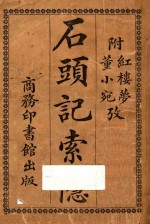 附
紅樓夢攷
董小宛攷
石頭記索隱
商務印書館出版